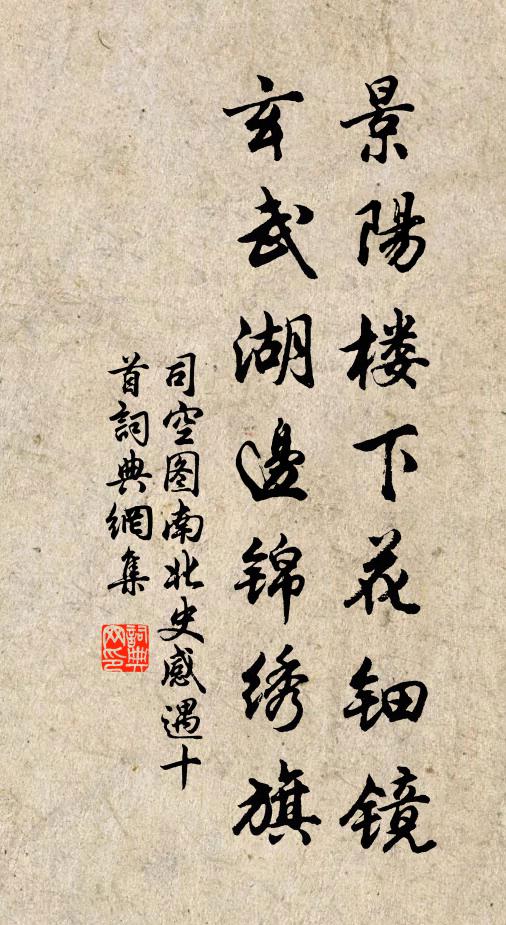 景陽楼下花钿镜
玄武湖邊锦绣旗
司空图南北史感遇十
首詞典網集
詞典
网印